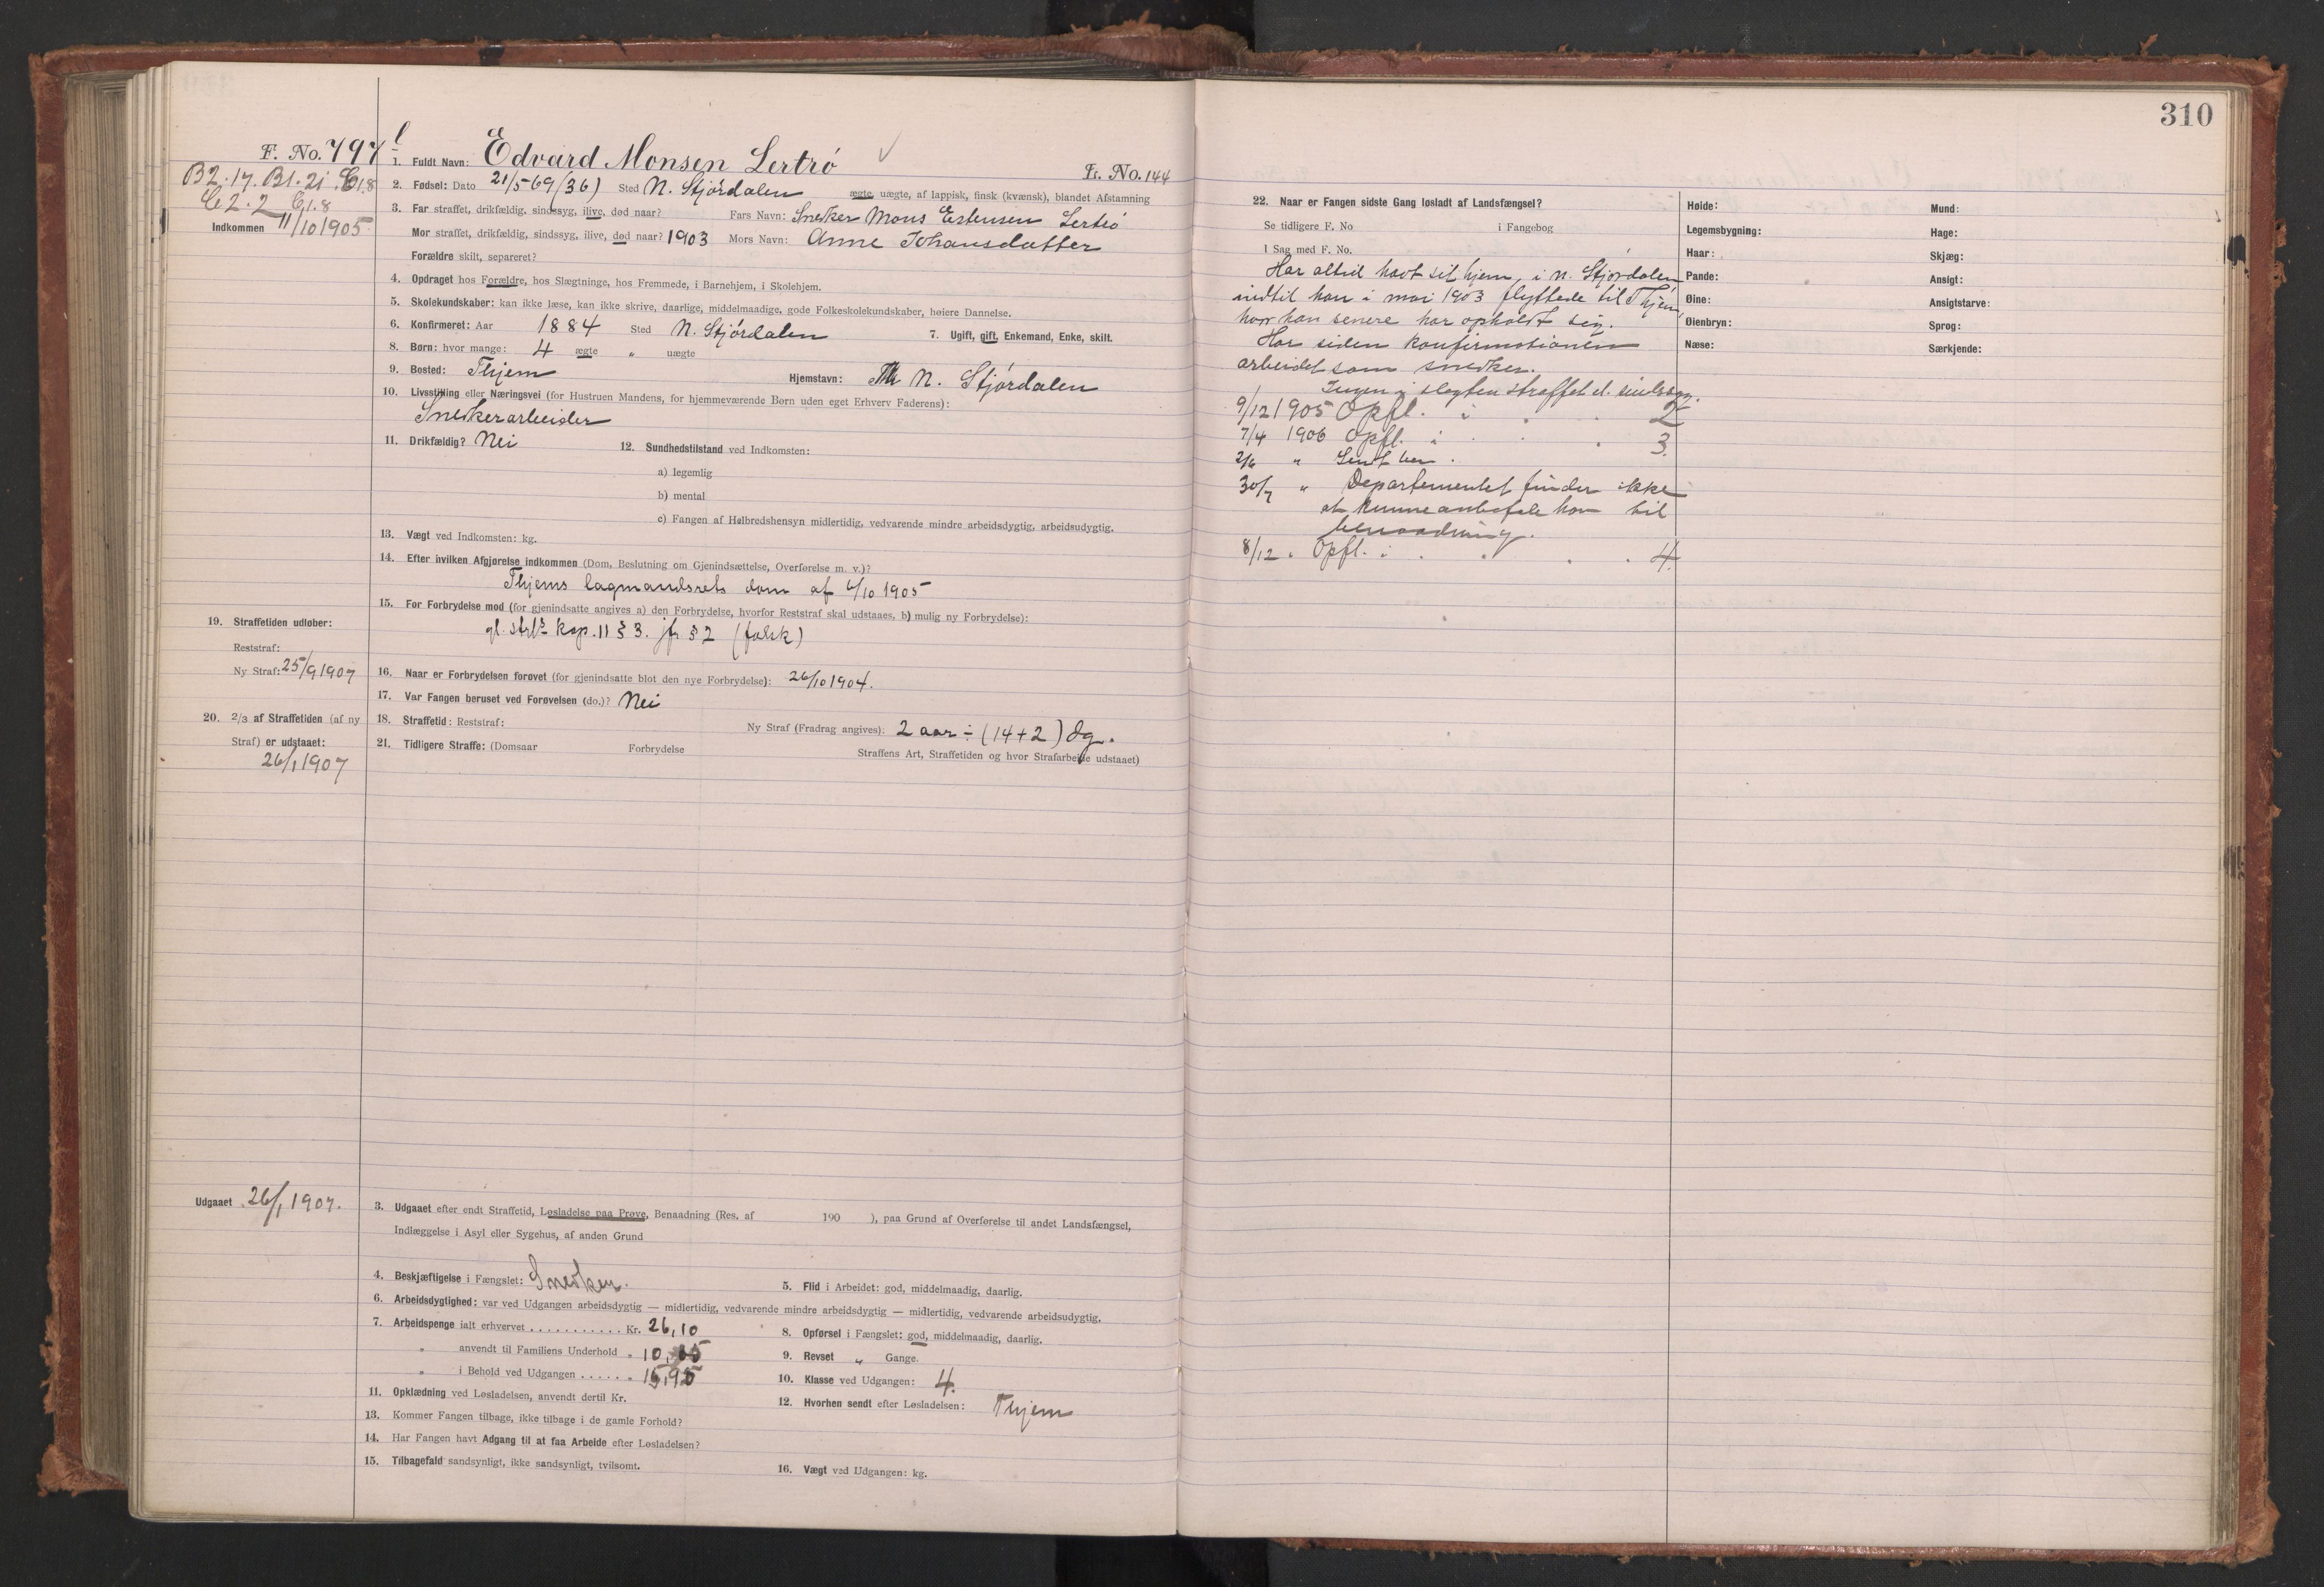 310
F. No. 797
B2.17. B1.21. C1.8
C2.2 C1.8
Indkommen 11/10 1905
1. Fuldt Navn: Edvard Monsen Lertrö
Fr. No. 144
2. Fødsel: Dato 21/5 69 (36) Sted N. Stjördalen ægte, uægte, af lappisk, finsk (kvænsk), blandet Afstamning
3. Far straffet, drikfældig, sindssyg, ilive, død naar? Fars Navn: Snedker Mons Estensen Lertrö
Mor straffet, drikfældig, sindssyg, ilive, død naar? 1903 Mors Navn: Anne Johansdatter
Forældre skilt, separeret?
4. Opdraget hos Forældre, hos Slægtninge, hos Fremmede, i Barnehjem, i Skolehjem.
5. Skolekundskaber: kan ikke læse, kan ikke skrive, daarlige, middelmaadige, gode Folkeskolekundskaber, høiere Dannelse.
6. Konfirmeret: Aar 1884 Sted N. Stjördalen 7. Ugift, gift, Enkemand, Enke, skilt.
8. Børn: hvor mange: 4 ægte " uægte
9. Bosted: Thjem Hjemstavn: N. Stjördalen
10. Livsstilling eller Næringsvei (for Hustruen Mandens, for hjemmeværende Børn uden eget Erhverv Faderens):
Snedkerarbeider
11. Drikfældig? Nei 12. Sundhedstilstand ved Indkomsten:
a) legemlig
b) mental
c) Fangen af Helbredshensyn midlertidig, vedvarende mindre arbeidsdygtig, arbeidsudygtig.
13. Vægt ved Indkomsten: kg.
14. Efter hvilken Afgjørelse indkommen (Dom, Beslutning om Gjenindsættelse, Overførelse m. v.)?
Thjems lagmandsrets dom af 6/10 1905
15. For Forbrydelse mod (for gjenindsatte angives a) den Forbrydelse, hvorfor Reststraf skal udstaaes, b) mulig ny Forbrydelse):
gl. strl. kap. 11 § 3. jfr § 2 (falsk)
19. Straffetiden udløber:
Reststraf:
Ny Straf: 25/9 1907
16. Naar er Forbrydelsen forøvet (for gjenindsatte blot den nye Forbrydelse): 26/10 1904.
17. Var Fangen beruset ved Forøvelsen (do.)? Nei
20. 2/3 af Straffetiden (af ny
Straf) er udstaaet:
26/1 1907
18. Straffetid: Reststraf: Ny Straf (Fradrag angives): 2 aar ÷ (14+2) dg.
21. Tidligere Straffe: (Domsaar Forbrydelse Straffens Art, Straffetiden og hvor Strafarbeide udstaaet)
Udgaaet 26/1 1907.
3. Udgaaet efter endt Straffetid, Løsladelse paa Prøve, Benaadning (Res. af 190 ), paa Grund af Overførelse til andet Landsfængsel,
Indlæggelse i Asyl eller Sygehus, af anden Grund
4. Beskjæftigelse i Fængslet: Snedker. 5. Flid i Arbeidet: god, middelmaadig, daarlig.
6. Arbeidsdygtighed: var ved Udgangen arbeidsdygtig — midlertidig, vedvarende mindre arbeidsdygtig — midlertidig, vedvarende arbeidsudygtig.
7. Arbeidspenge ialt erhvervet ........... Kr. 26,10 8. Opførsel i Fængslet: god, middelmaadig, daarlig.
" anvendt til Familiens Underhold " 9. Revset " Gange.
" i Behold ved Udgangen ...... " 10. Klasse ved Udgangen: 4.
11. Opklædning ved Løsladelsen, anvendt dertil Kr. 12. Hvorhen sendt efter Løsladelsen: Thjem
13. Kommer Fangen tilbage, ikke tilbage i de gamle Forhold?
14. Har Fangen havt Adgang til at faa Arbeide efter Løsladelsen?
15. Tilbagefald sandsynligt, ikke sandsynligt, tvilsomt. 16. Vægt ved Udgangen: kg.
22. Naar er Fangen sidste Gang løsladt af Landsfængsel?
Se tidligere F. No i Fangebog
I Sag med F. No.
Har altid havt sit hjem i N. Stjördalen
indtil han i mai 1903 flyttede til Thjem,
hvor han senere har opholdt sig.
Har siden konfirmationen
arbeidet som snedker.
Ingen i slegten straffet el. sindssyg.
9/12 1905 Opfl. i . . 2
7/4 1906 Opfl. i . . . 3.
2/6 " Sendt ben.
30/7 " Departementet finder ikke
at kunne anbefale ham til
benaadning.
8/12 " Opfl. i . . . 4.
Høide: Mund:
Legemsbygning: Hage:
Haar: Skjæg:
Pande: Ansigt:
Øine: Ansigtsfarve:
Øienbryn: Sprog:
Næse: Særkjende: